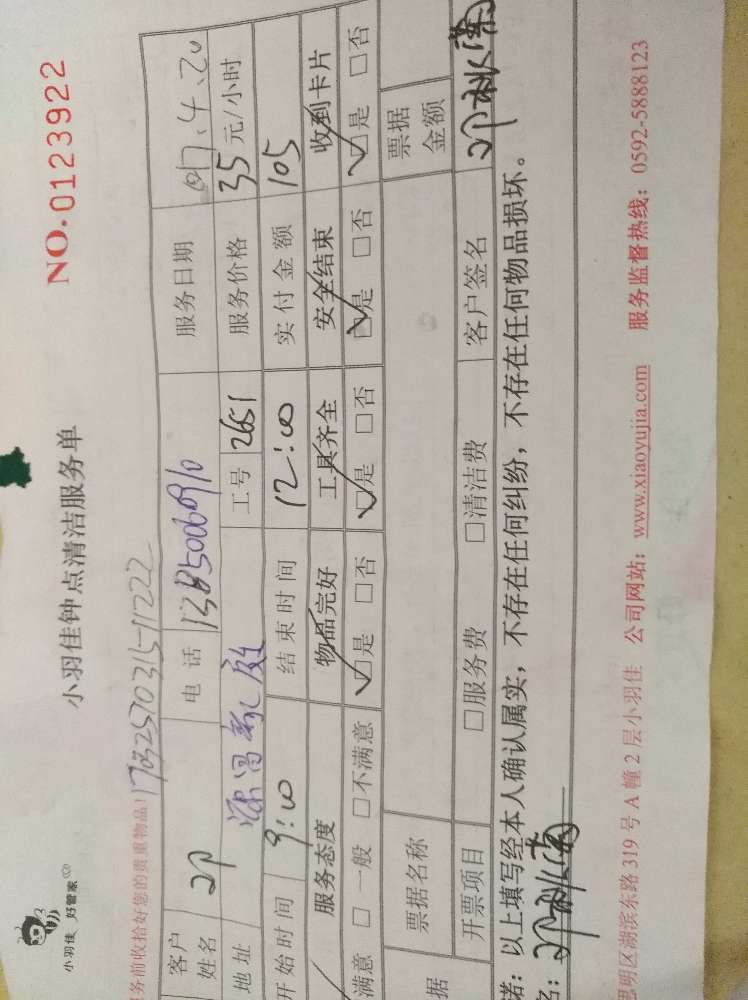 小羽佳 好管家
小羽佳钟点清洁服务单
NO.0123922
务前收拾好您的贵重物品!
客户姓名 邓 电话 13850060910 服务日期 017.4.20
地址 源昌新庭 工号 2651 服务价格 35元/小时
开始时间 9:00 结束时间 12:00 实付金额 105
服务态度 物品完好 工具齐全 安全结束 收到卡片
满意 □一般 □不满意 ☑是 □否 ☑是 □否 ☑是 □否 ☑是 □否
据 票据名称 票据金额
开票项目 □服务费 □清洁费 客户签名 邓秋
诺:以上填写经本人确认属实,不存在任何纠纷,不存在任何物品损坏。
名:邓秋
思明区湖滨东路319号A幢2层小羽佳 公司网站:www.xiaoyujia.com 服务监督热线:0592-5888123